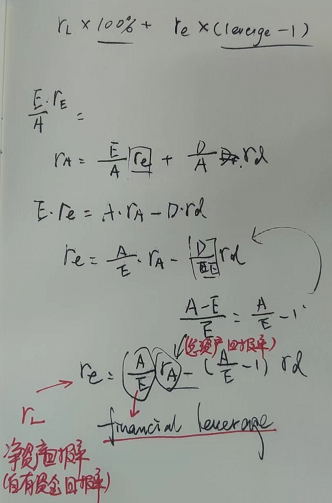 r_L × 100% + r_e × (leverge - 1)
E/A · r_E =
r_A = E/A r_e + D/A r_d
E · r_e = A · r_A - D · r_d
r_e = A/E · r_A - D/E r_d
A-E/E = A/E - 1
(总资产回报率)
r_e = (A/E) r_A - (A/E - 1) r_d
r_L
financial leverage
净资产回报率
(自有资金回报率)